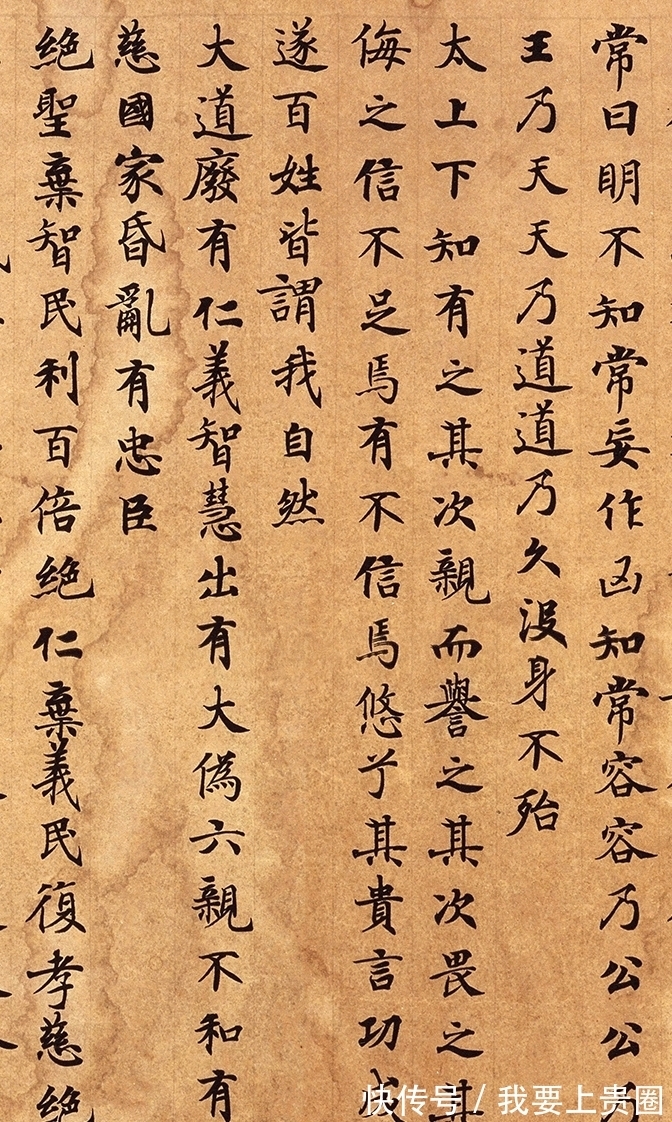 常曰明不知常妄作凶知常容容乃公公乃
王乃天天乃道道乃久沒身不殆
太上下知有之其次親而譽之其次畏之其
侮之信不足焉有不信焉悠兮其貴言功成
遂百姓皆謂我自然
大道廢有仁義智慧出有大偽六親不和有
慈國家昏亂有忠臣
絕聖棄智民利百倍絕仁棄義民復孝慈絕
快传号 / 我要上贵圈